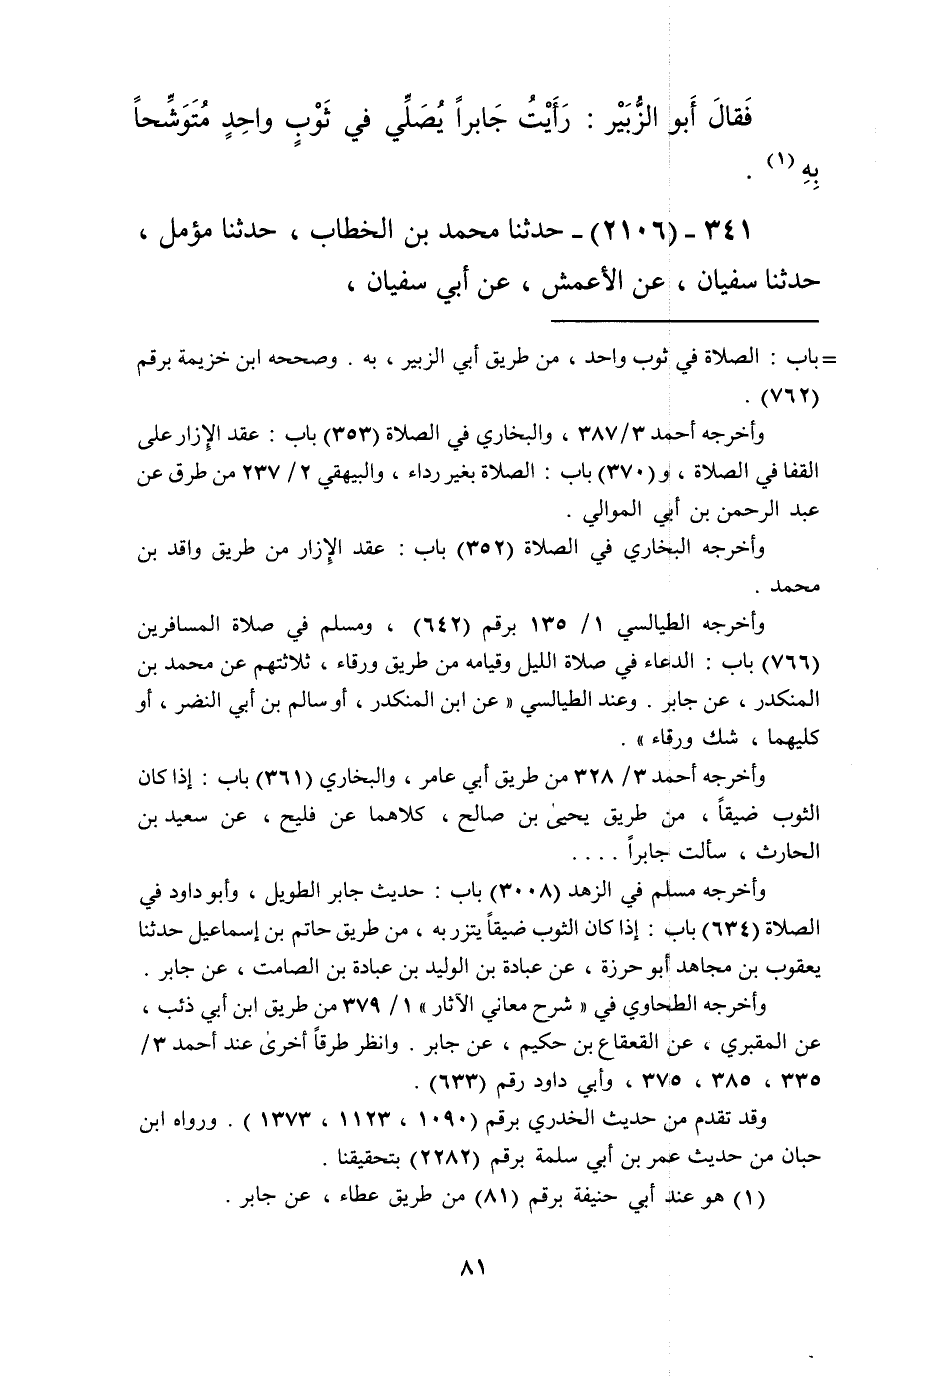 فَقالَ أَبو الزُّبَيْر : رَأَيْتُ جَابراً يُصَلِّي في ثَوْبٍ واحِدٍ مُتَوَشِّحاً
بِهِ (١) .
٣٤١ ـ (٢١٠٦) ـ حدثنا محمد بن الخطاب ، حدثنا مؤمل ،
حدثنا سفيان ، عن الأعمش ، عن أبي سفيان ،
= باب : الصلاة في ثوب واحد ، من طريق أبي الزبير ، به . وصححه ابن خزيمة برقم
(٧٦٢) .
وأخرجه أحمد ٣/ ٣٨٧ ، والبخاري في الصلاة (٣٥٣) باب : عقد الإزار على
القفا في الصلاة ، و(٣٧٠) باب : الصلاة بغير رداء ، والبيهقي ٢/ ٢٣٧ من طرق عن
عبد الرحمن بن أبي الموالي .
وأخرجه البخاري في الصلاة (٣٥٢) باب : عقد الإزار من طريق واقد بن
محمد .
وأخرجه الطيالسي ١/ ١٣٥ برقم (٦٤٢) ، ومسلم في صلاة المسافرين
(٧٦٦) باب : الدعاء في صلاة الليل وقيامه من طريق ورقاء ، ثلاثتهم عن محمد بن
المنكدر ، عن جابر . وعند الطيالسي « عن ابن المنكدر ، أو سالم بن أبي النضر ، أو
كليهما ، شك ورقاء » .
وأخرجه أحمد ٣/ ٣٢٨ من طريق أبي عامر ، والبخاري (٣٦١) باب : إذا كان
الثوب ضيقاً ، من طريق يحيىٰ بن صالح ، كلاهما عن فليح ، عن سعيد بن
الحارث ، سألت جابراً ....
وأخرجه مسلم في الزهد (٣٠٠٨) باب : حديث جابر الطويل ، وأبو داود في
الصلاة (٦٣٤) باب : إذا كان الثوب ضيقاً يتزر به ، من طريق حاتم بن إسماعيل حدثنا
يعقوب بن مجاهد أبو حرزة ، عن عبادة بن الوليد بن عبادة بن الصامت ، عن جابر .
وأخرجه الطحاوي في « شرح معاني الآثار » ١/ ٣٧٩ من طريق ابن أبي ذئب ،
عن المقبري ، عن القعقاع بن حكيم ، عن جابر . وانظر طرقاً أخرىٰ عند أحمد ٣/
٣٣٥ ، ٣٨٥ ، ٣٧٥ ، وأبي داود رقم (٦٣٣) .
وقد تقدم من حديث الخدري برقم (١٠٩٠ ، ١١٢٣ ، ١٣٧٣ ) . ورواه ابن
حبان من حديث عمر بن أبي سلمة برقم (٢٢٨٢) بتحقيقنا .
(١) هو عند أبي حنيفة برقم (٨١) من طريق عطاء ، عن جابر .
٨١